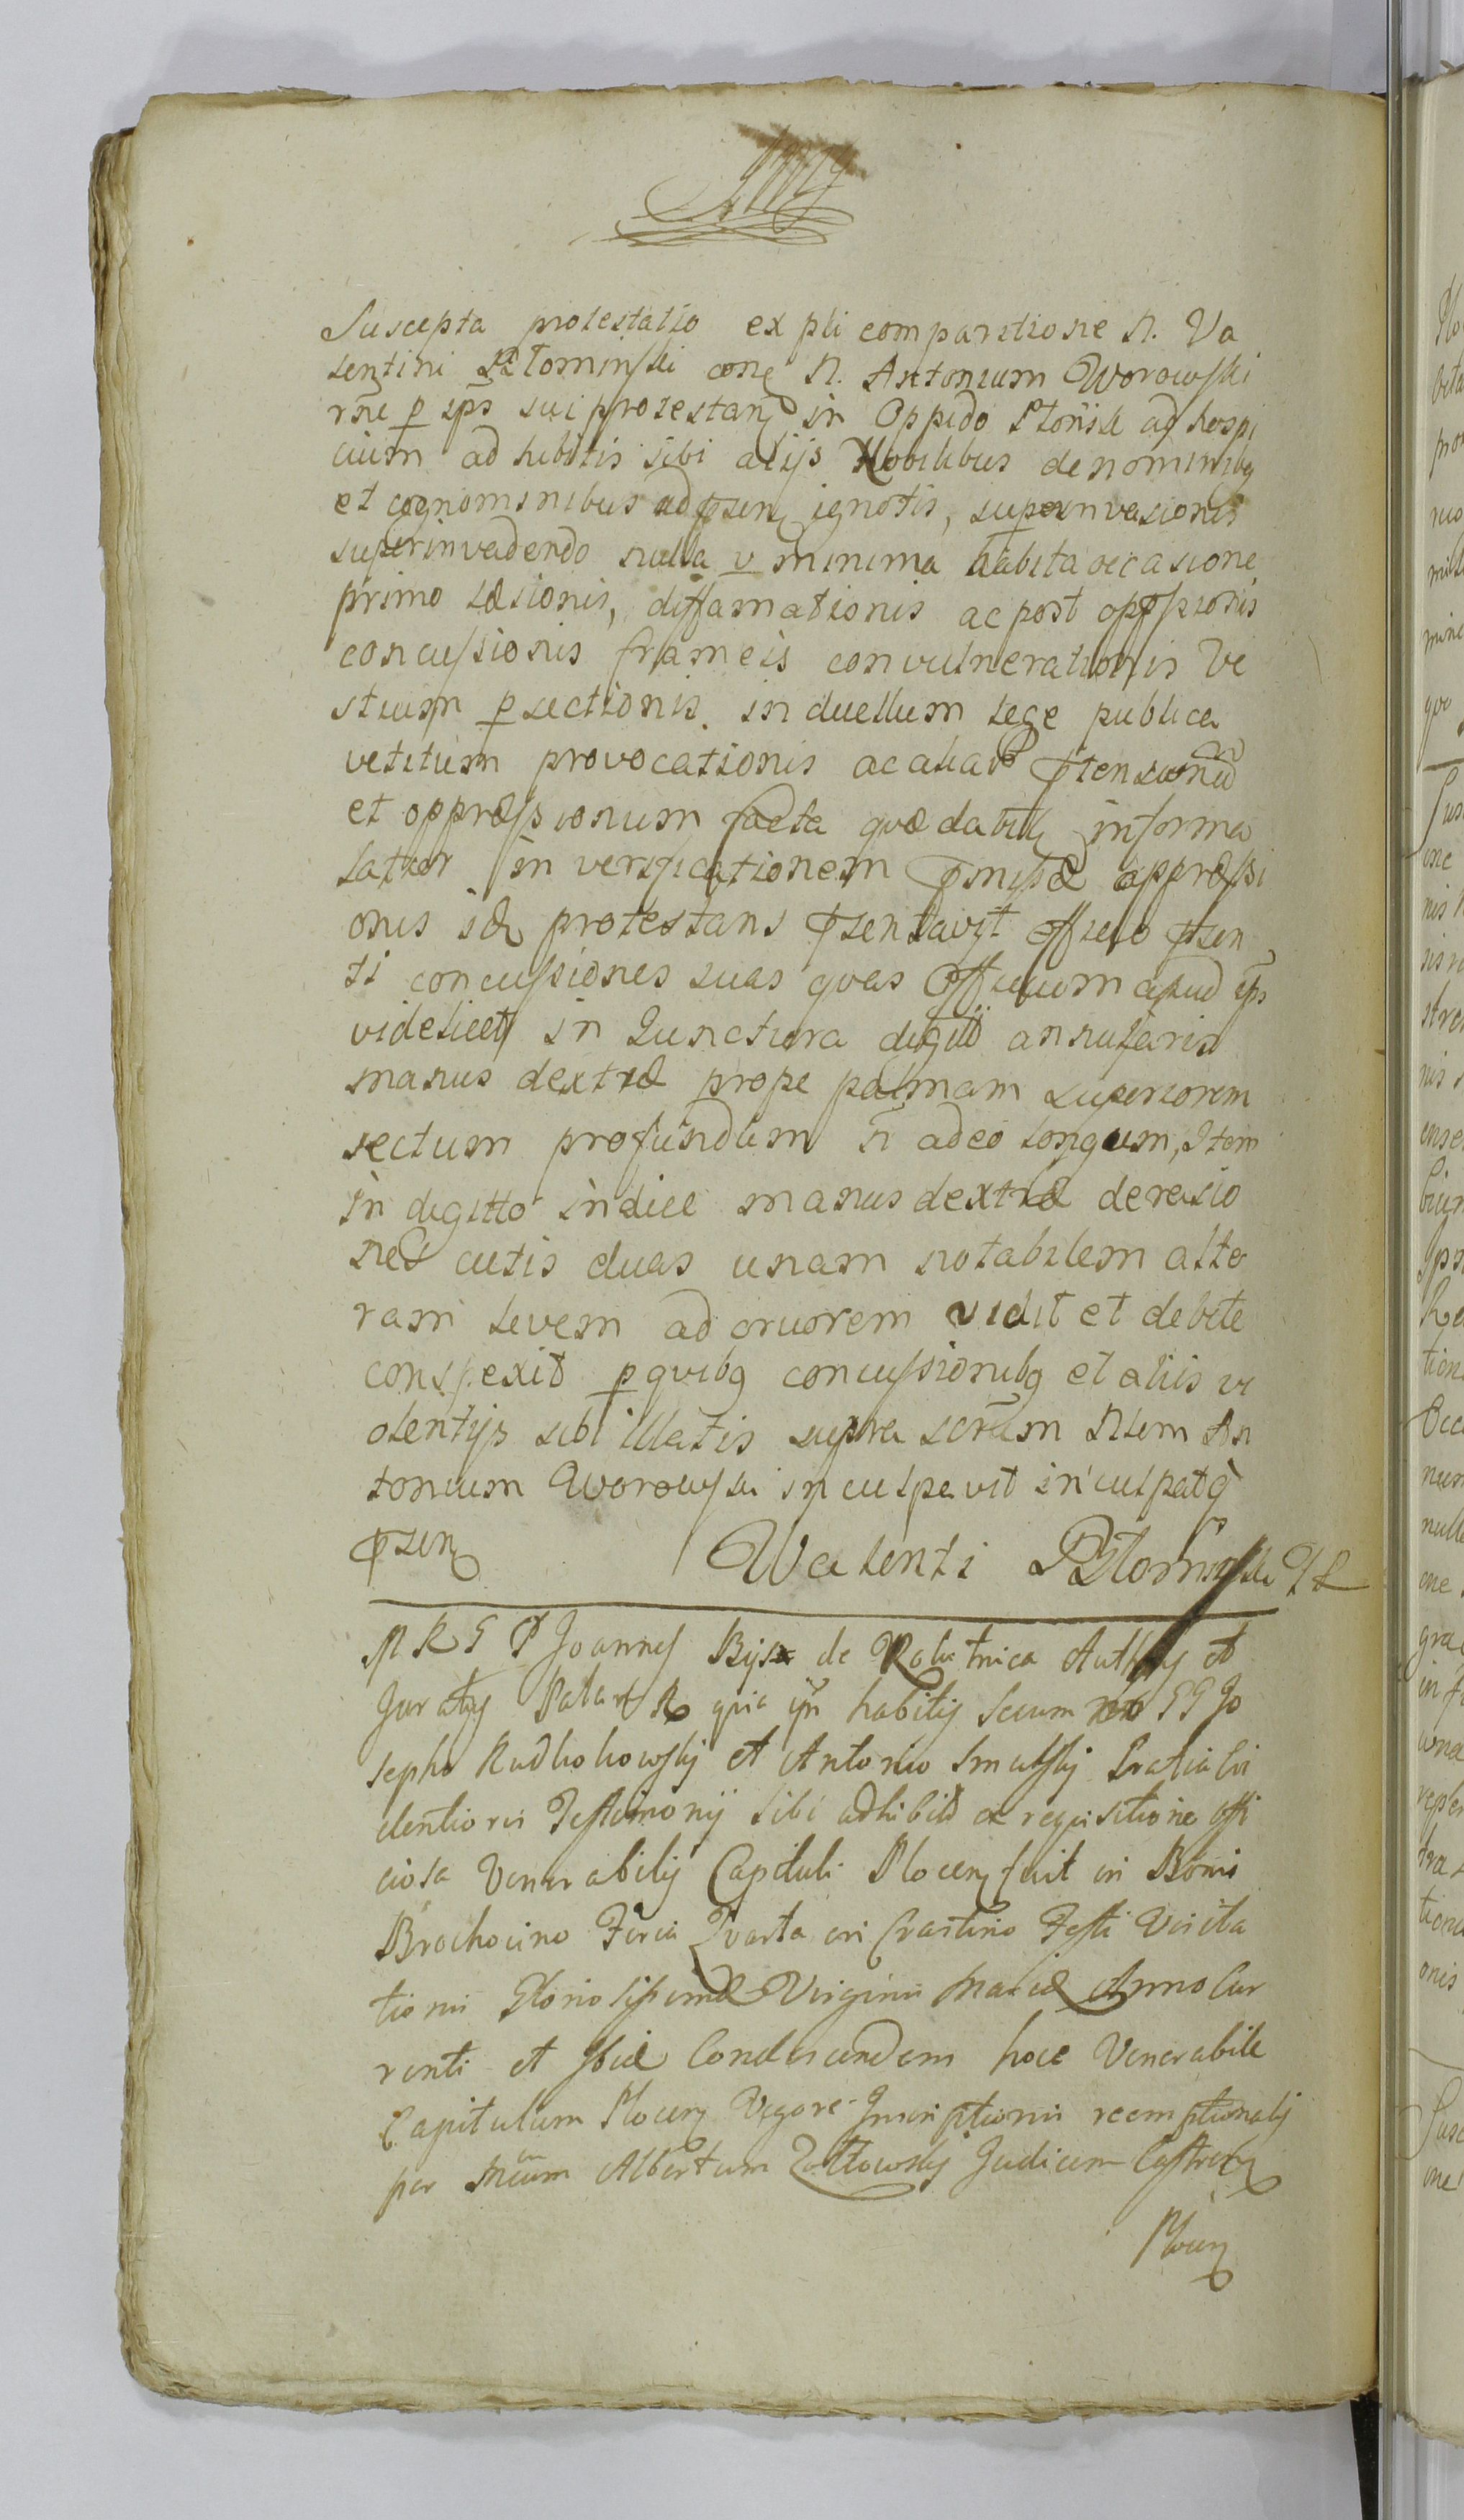 Suscepta protestatio ex psli comparitione N. Va
lentini Płominski con N. Antonium Worowski
rne p ips sui protestan in Oppido Płonsk ad hospi
cium ad hibitis sibi alijs Nobilibus de nominibq
et cognominibus ad psen ignotis, superinvasionis
superinvadendo nulla v minima habita occasione
primo læsionis, diffamationis ac post oppssionis
concussionis frameis convulnerationis Ve
stium p sectionis in duellum lege publica
vetitum provocationis ac aliar ptensionu
et oppræssionum facta quæ dabit informa
latior in verificationem pmissæ oppræssi
onis id protestans psentavit officio psen
ti concussiones suas quas Officium apud ips
videlicet in Junctura digiti annularis
manus dextræ prope palmam superiorem
sectum profundum n adeo longum, Item
in digitto indice manus dextræ derasio
nes cutis duas unam notabilem alte
ram levem ad cruorem vidit et debite
conspexit p quibq concussionibq et aliis vi
olentijs sibi illatis supra scrum Nlem An
tonium Worowski inculpavit inculpatq
psen
Walenti Płominski
Joannes de Robotnica Auth et
Juratq quia habitis secum GG Jo
sepho Rudkohowskj et Antonio Smulskj gratia evi
dentioris Testimonij sibi adhibit ex requisitione offi
ciosa Venerabilis Capituli Plocen fuit in Bonis
Brochocino Feria Quarta in Crastino Festi Visita
tionis Gloriosissimæ Virginis Mariæ Anno Cur
renti et ibid Condescendem hocce Venerabile
Capitulum Plocen Vigore Inscriptionis reemptionalis
per Mcum Albertum Zołtowskj Judicem Castren
Plocen